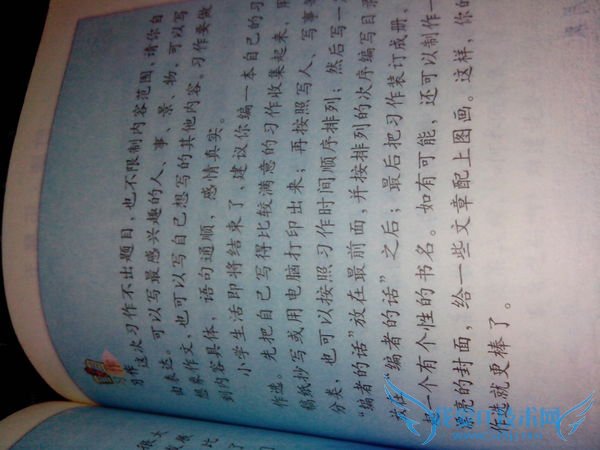 习作
这次习作不出题目,也不限制内容范围,请你自
由表达。可以写最感兴趣的人、事、景、物,可以写
想象作文,也可以写自己想写的其他内容。习作要做
到内容具体,语句通顺,感情真实。
小学生活即将结束了,建议你编一本自己的习
作选。先把自己写得比较满意的习作收集起来,用
稿纸抄写或用电脑打印出来;再按照写人、写事等
分类,也可以按照习作时间顺序排列;然后写一
“编者的话”放在最前面,并按排列的次序编写目录
放在“编者的话”之后;最后把习作装订成册,
起一个有个性的书名。如有可能,还可以制作一
漂亮的封面,给一些文章配上图画。这样,你的
作选就更棒了。